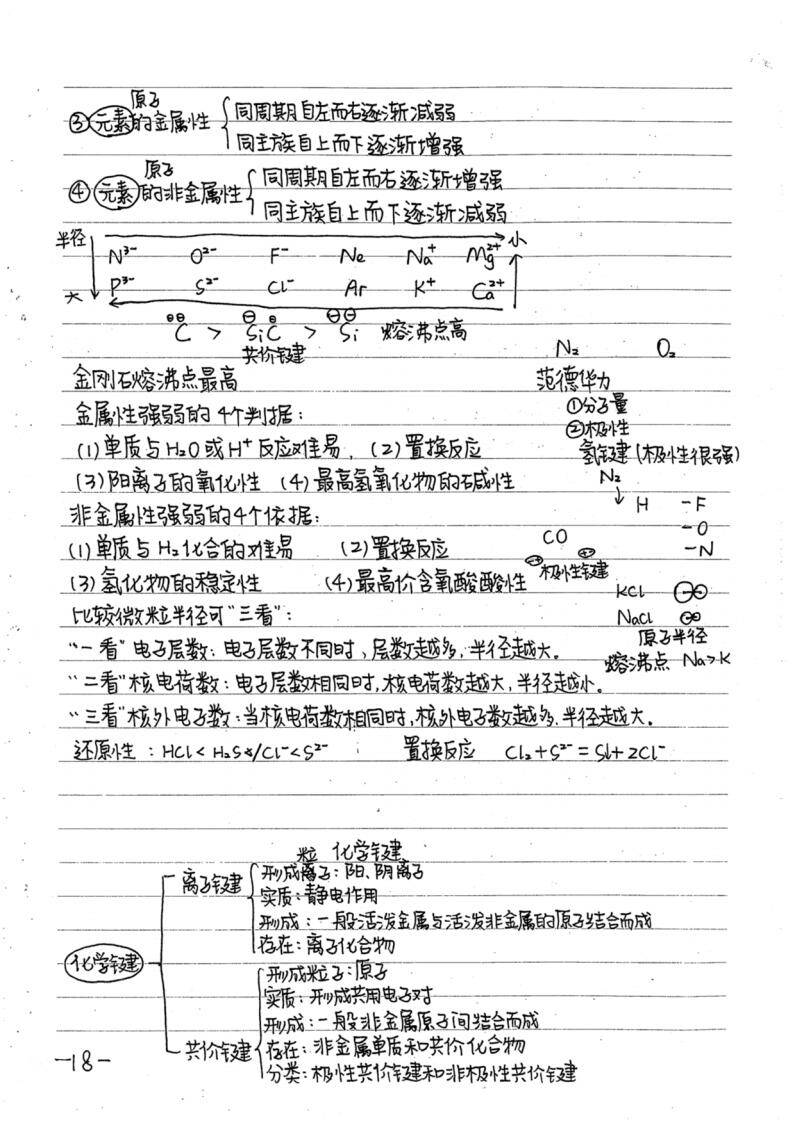 原子
③元素的金属性 { 同周期自左而右逐渐减弱
同主族自上而下逐渐增强
原子
④元素的非金属性 { 同周期自左而右逐渐增强
同主族自上而下逐渐减弱
半径 小
N³⁻ O²⁻ F⁻ Ne Na⁺ Mg²⁺
大 P³⁻ S²⁻ Cl⁻ Ar K⁺ Ca²⁺
C > SiC > Si 熔沸点高
共价键
N₂ O₂
金刚石熔沸点最高 范德华力
①分子量
金属性强弱的4个判据:
②极性
(1)单质与H₂O或H⁺反应难易, (2)置换反应
氢键(极性很强)
(3)阳离子的氧化性 (4)最高氢氧化物的碱性
N₂
↓ H -F
非金属性强弱的4个依据:
-O
(1)单质与H₂化合的难易 (2)置换反应
CO -N
⊖ ⊕
极性键
(3)氢化物的稳定性 (4)最高价含氧酸酸性
KCl
比较微粒半径可"三看":
NaCl
原子半径
"一看"电子层数:电子层数不同时,层数越多,半径越大。
熔沸点 Na>K
"二看"核电荷数:电子层数相同时,核电荷数越大,半径越小。
"三看"核外电子数:当核电荷数相同时,核外电子数越多,半径越大。
还原性:HCl<H₂S /Cl⁻<S²⁻ 置换反应 Cl₂+S²⁻=S↓+2Cl⁻
化学键
粒
离子键 { 形成离子:阳、阴离子
实质:静电作用
形成:一般活泼金属与活泼非金属的原子结合而成
存在:离子化合物
化学键
共价键 { 形成粒子:原子
实质:形成共用电子对
形成:一般非金属原子间结合而成
存在:非金属单质和共价化合物
分类:极性共价键和非极性共价键
-18-